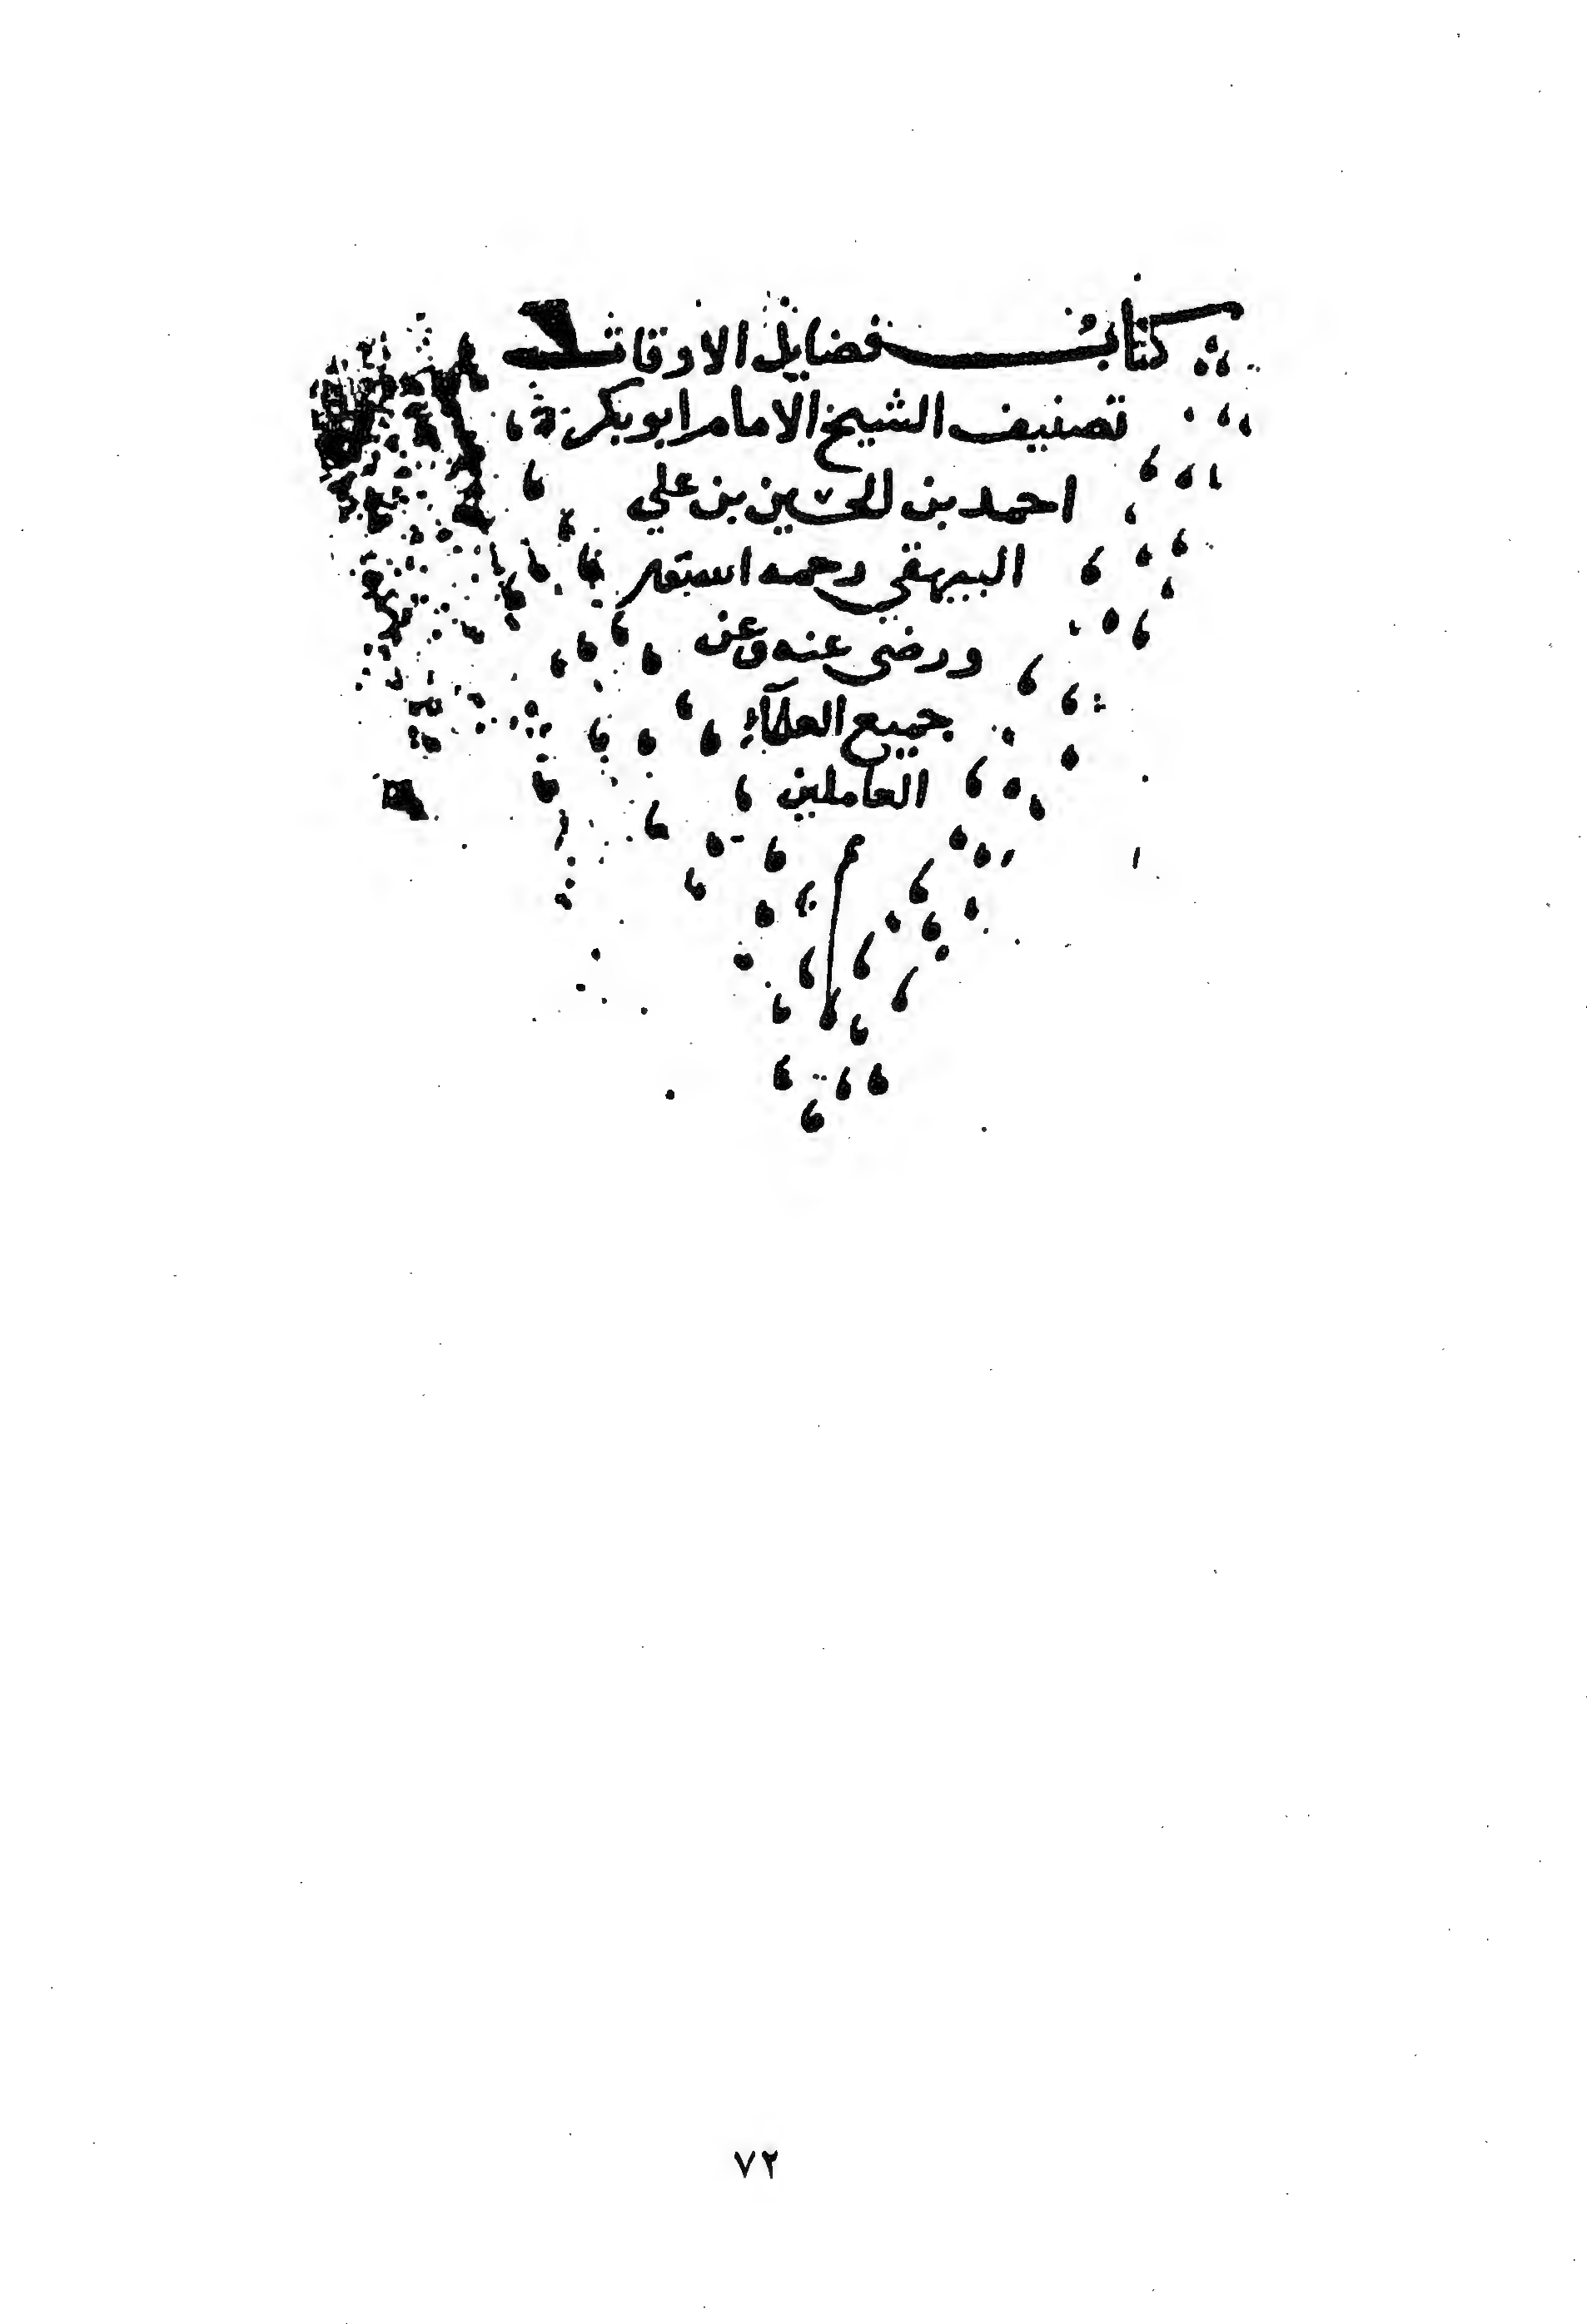 كتاب فضايل الاوقات
تصنيف الشيخ الامام ابو بكر
احمد بن الحسين بن علي
البيهقي رحمه الله تعلى
ورضي عنه وعن
جميع العلماء
العاملين
م
٧٢